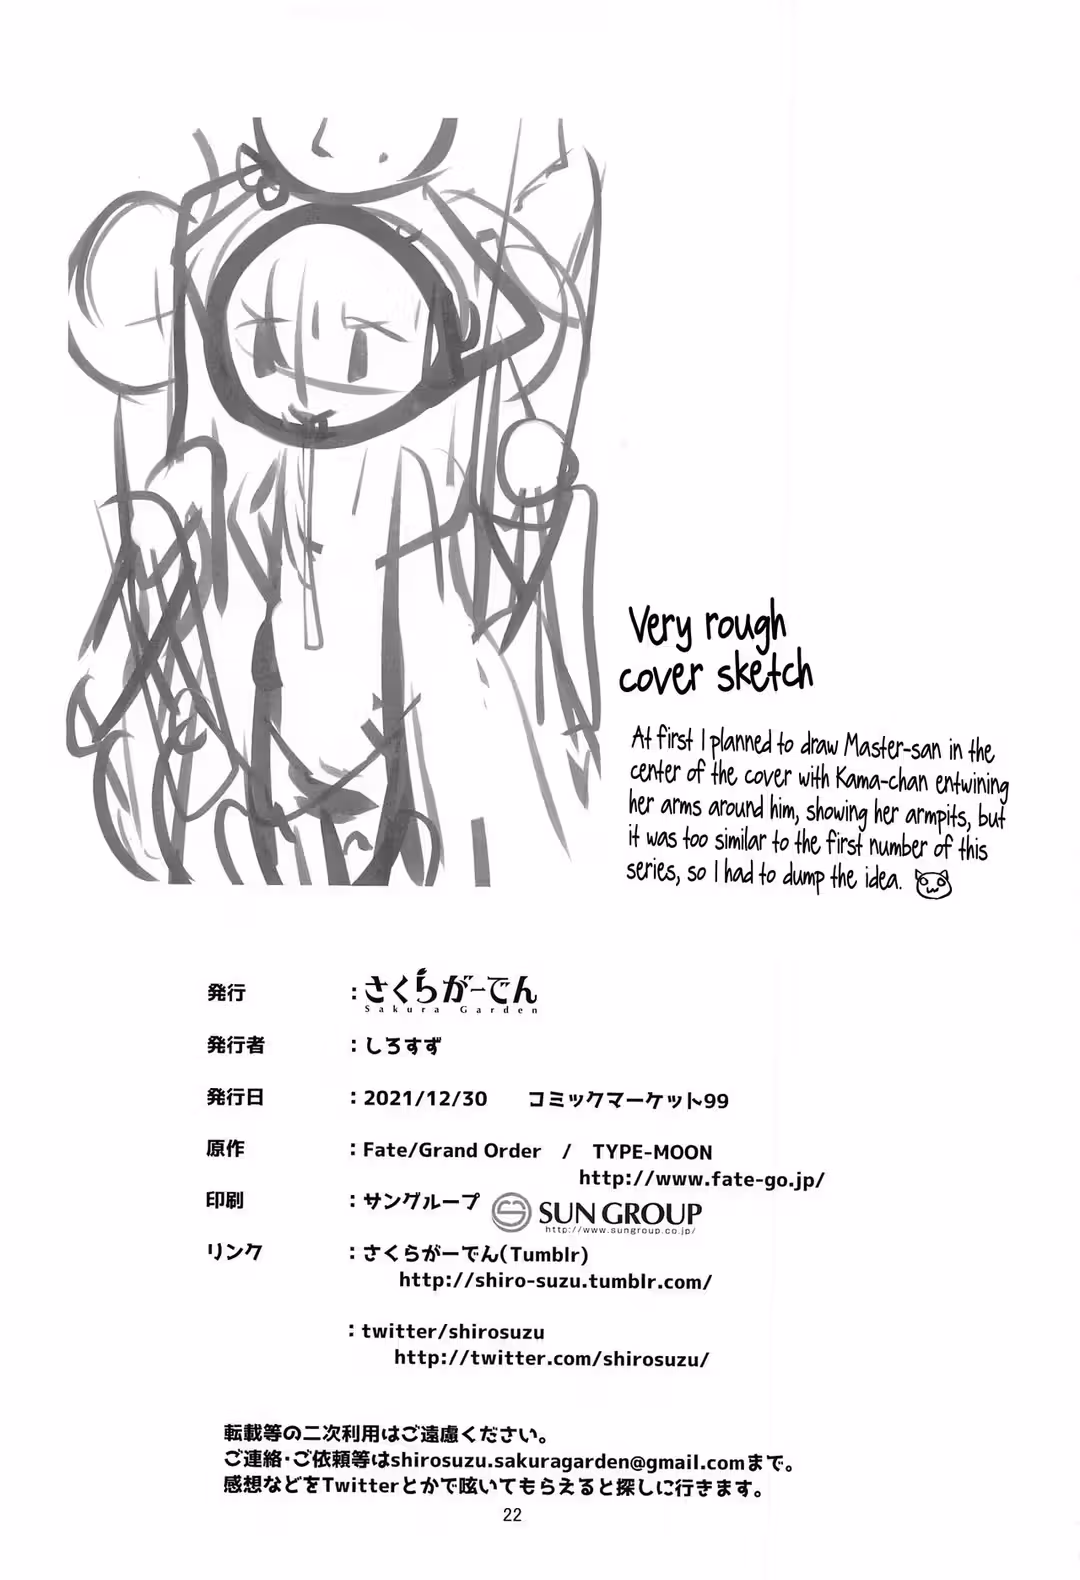 Very rough
cover sketch
At first I planned to draw Master-san in the
center of the cover with Kama-chan entwining
her arms around him, showing her armpits, but
it was too similar to the first number of this
series, so I had to dump the idea.
発行 ：さくらがーでん
Sakura Garden
発行者 ：しろすず
発行日 ：2021/12/30 コミックマーケット99
原作 ：Fate/Grand Order / TYPE-MOON
http://www.fate-go.jp/
印刷 ：サングループ SUN GROUP
http://www.sungroup.co.jp/
リンク ：さくらがーでん(Tumblr)
http://shiro-suzu.tumblr.com/
：twitter/shirosuzu
http://twitter.com/shirosuzu/
転載等の二次利用はご遠慮ください。
ご連絡・ご依頼等はshirosuzu.sakuragarden@gmail.comまで。
感想などをTwitterとかで呟いてもらえると探しに行きます。
22